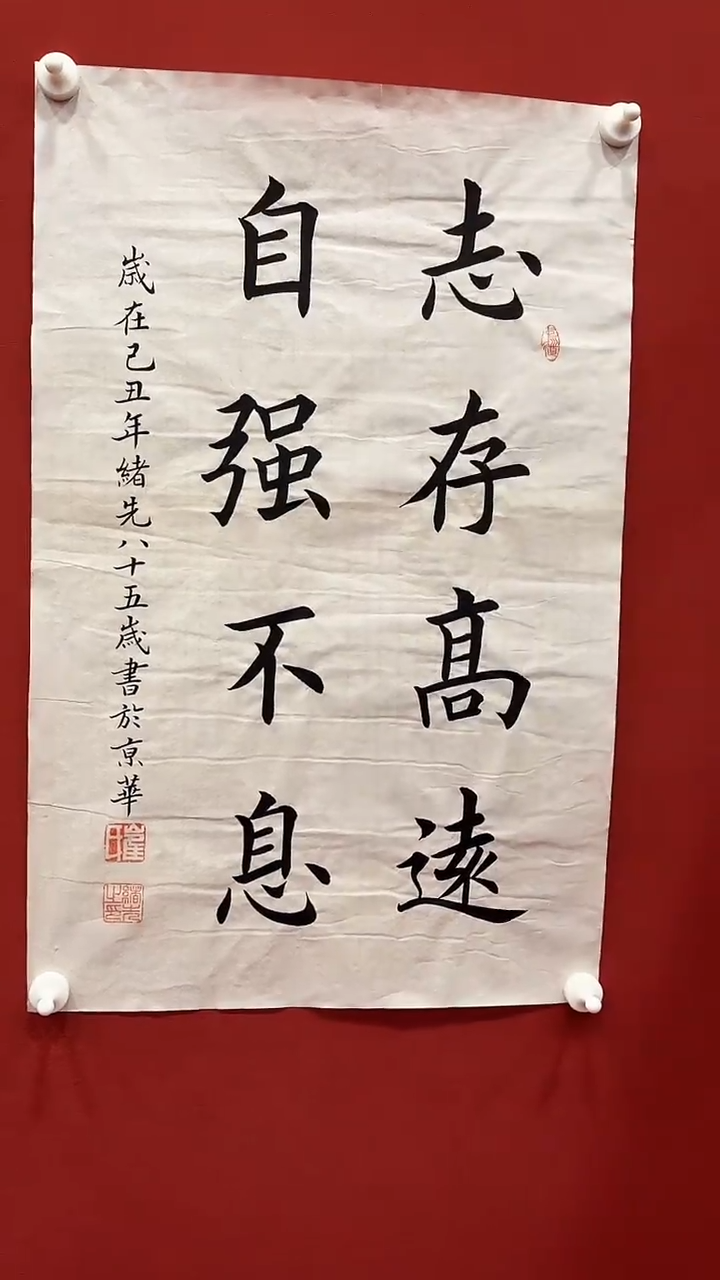 志存髙遠
自强不息
歳在己丑年緒先八十五歳書於京華